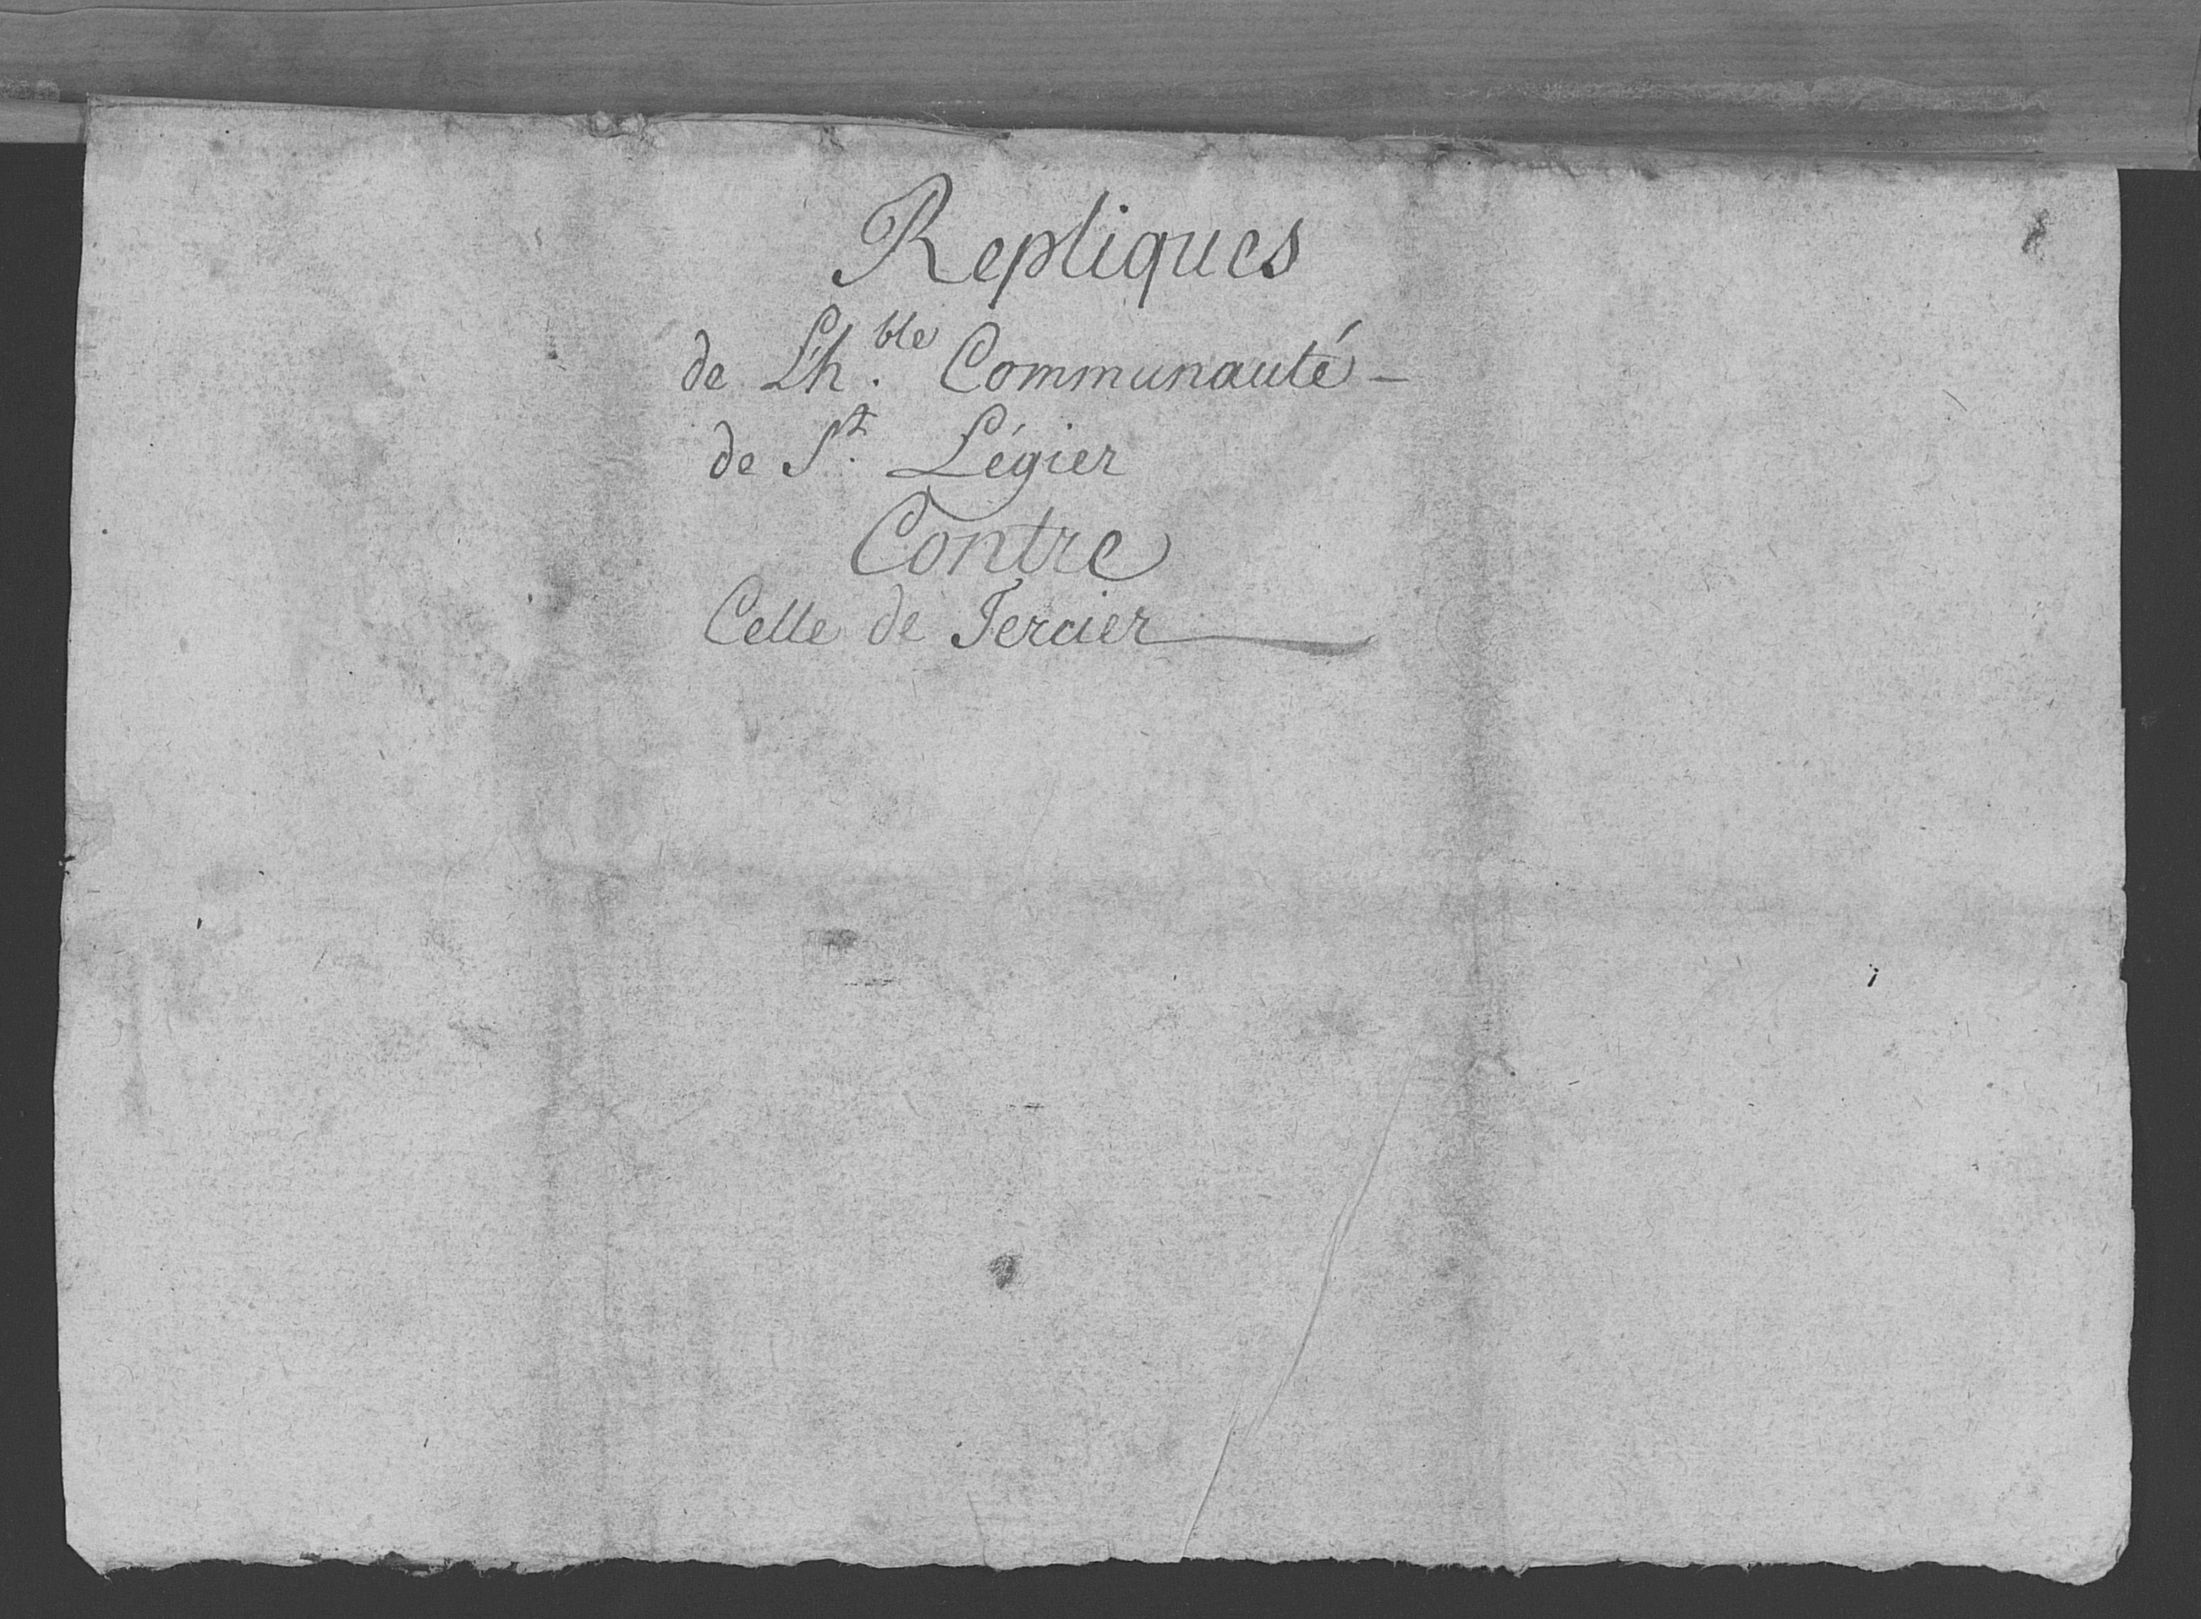 Repliques
de L'h.ble Communauté –
de St. Légier
Contre
Celle de Tercier